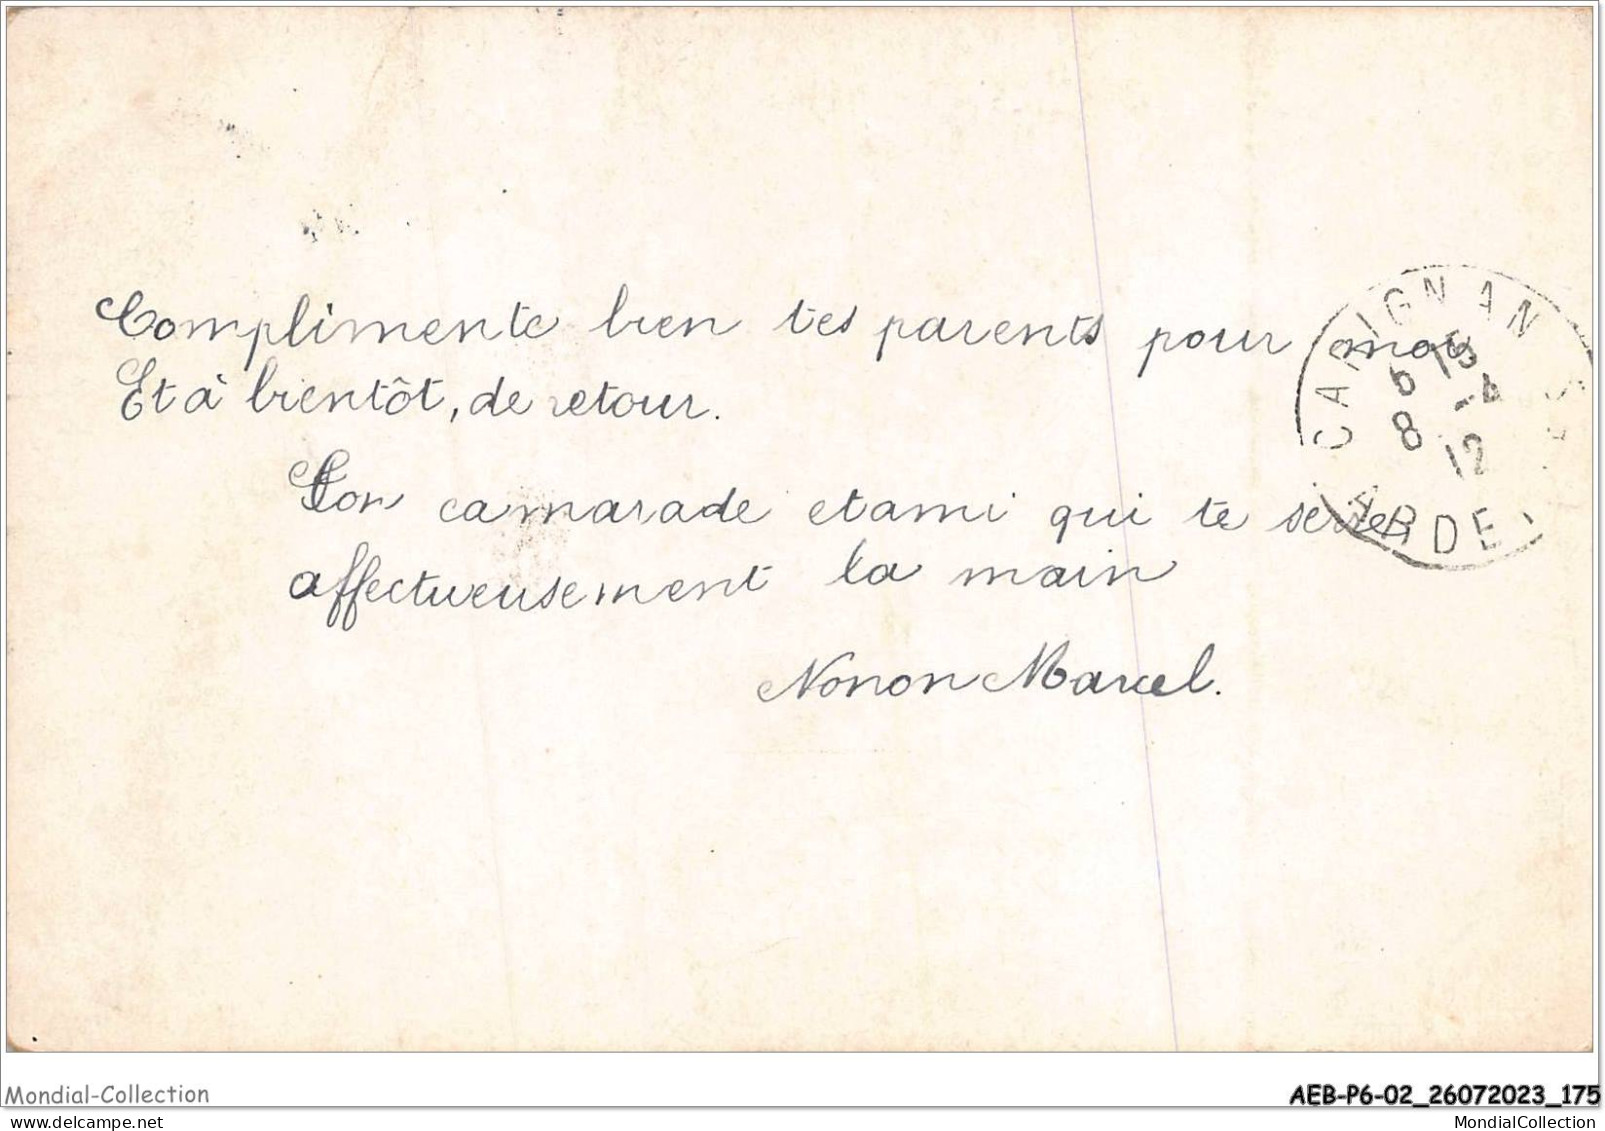 Complimente bien tes parents pour moi
Et à bientôt, de retour.
Ton camarade et ami qui te serre
affectueusement la main
Nonon Marcel.
CARIGNAN
6 15
8 -4
12
ARDE
Mondial-Collection
AEB-P6-02_26072023_175
MondialCollection
MondialCollection